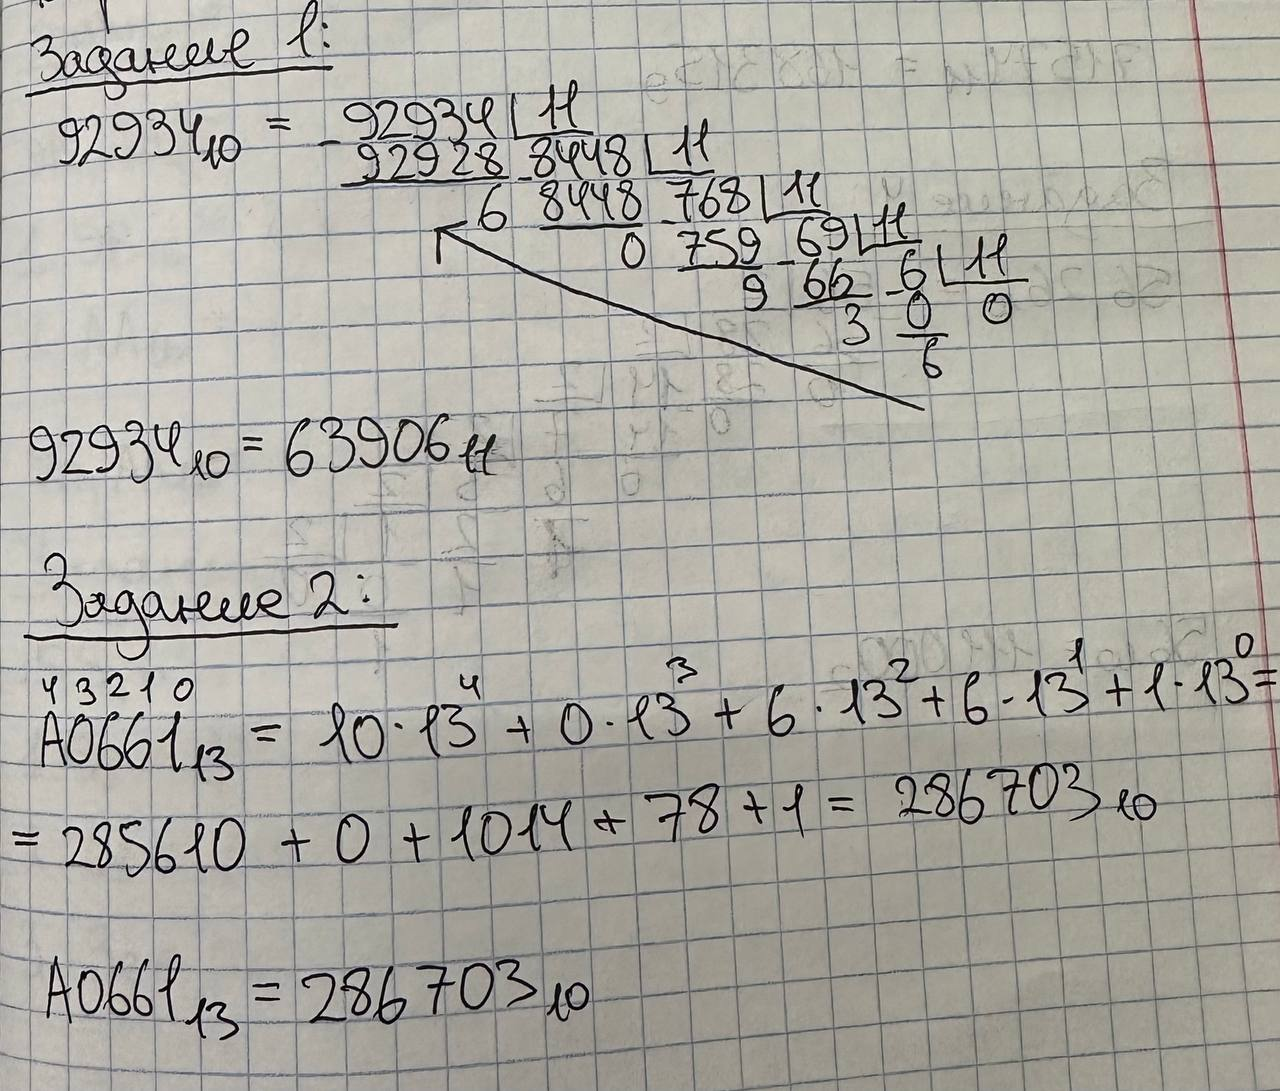 Задание 1:
92934₁₀ = - 92934 | 11
92928 - 8448 | 11
6 8448 - 768 | 11
0 759 - 69 | 11
9 66 - 6 | 11
3 0 0
6
92934₁₀ = 63906₁₁
Задание 2:
4 3 2 1 0
A0661₁₃ = 10·13⁴ + 0·13³ + 6·13² + 6·13¹ + 1·13⁰ =
= 285610 + 0 + 1014 + 78 + 1 = 286703₁₀
A0661₁₃ = 286703₁₀